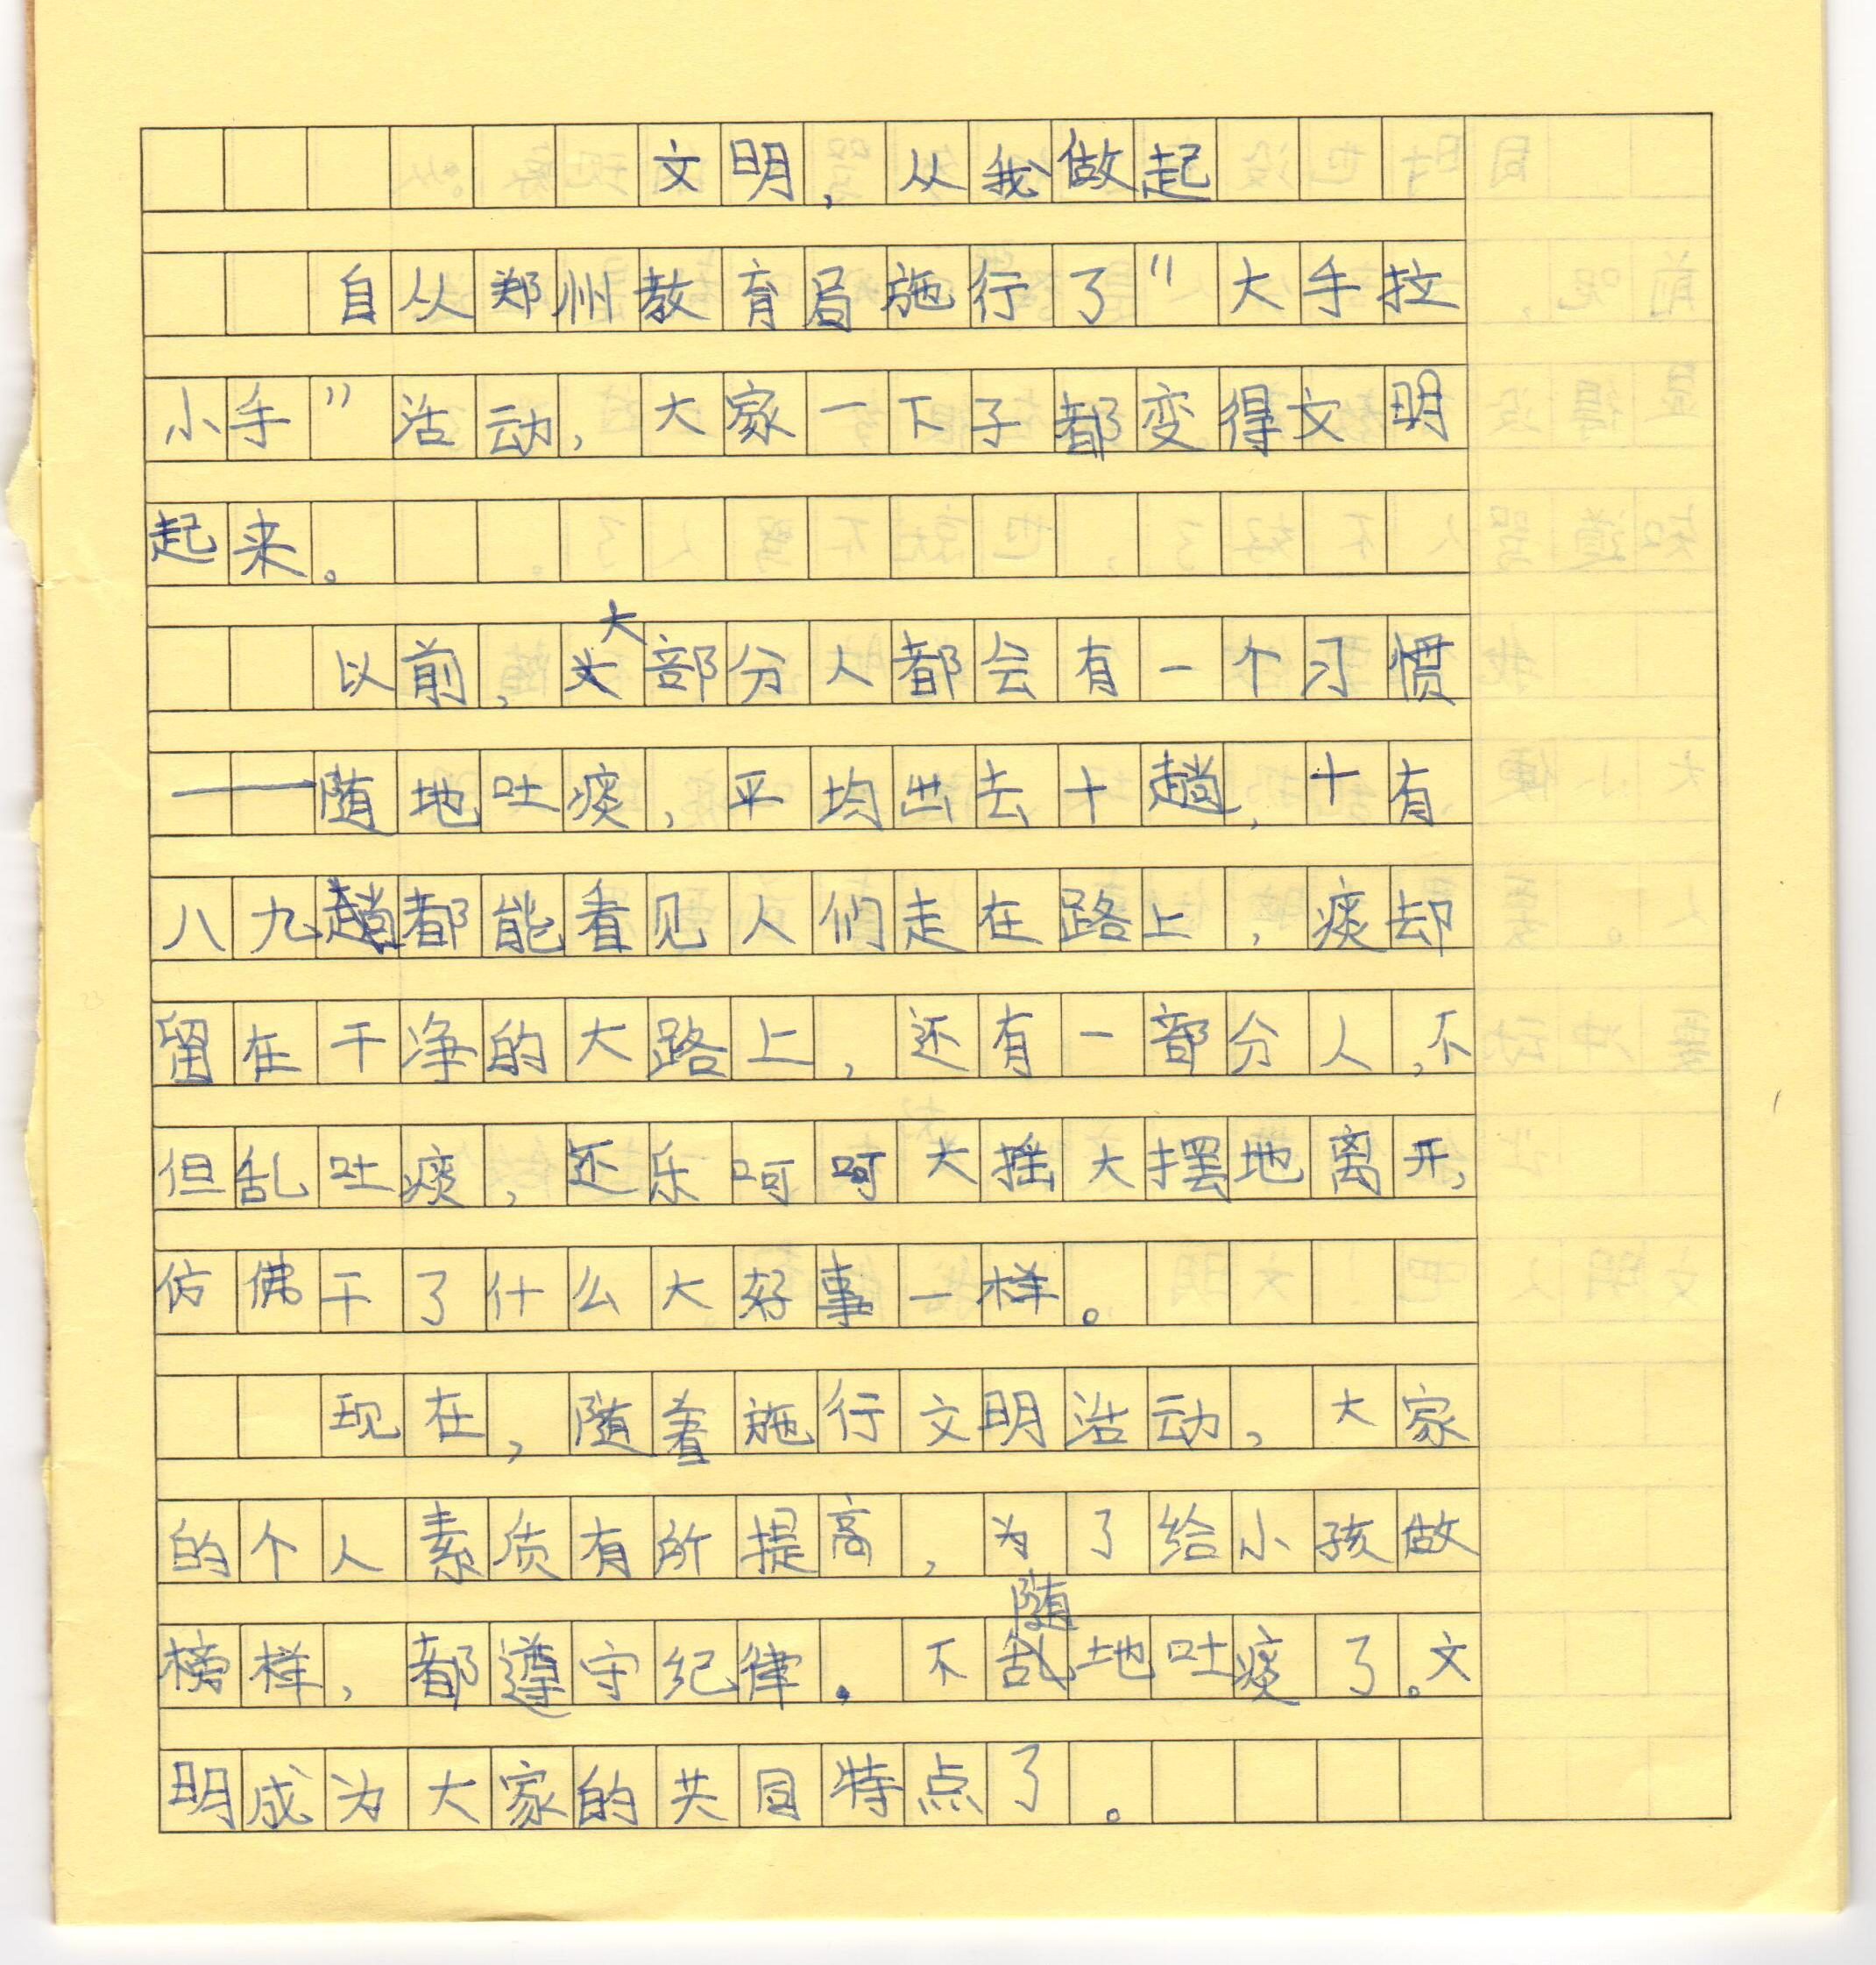 文明，从我做起
自从郑州教育局施行了"大手拉
小手"活动，大家一下子都变得文明
起来。
以前，大部分人都会有一个习惯
——随地吐痰，平均出去十趟，十有
八九趟都能看见人们走在路上，痰却
留在干净的大路上，还有一部分人，不
但乱吐痰，还乐呵呵大摇大摆地离开，
仿佛干了什么大好事一样。
现在，随着施行文明活动，大家
的个人素质有所提高，为了给小孩做
榜样，都遵守纪律，不随地吐痰了。文
明成为大家的共同特点了。